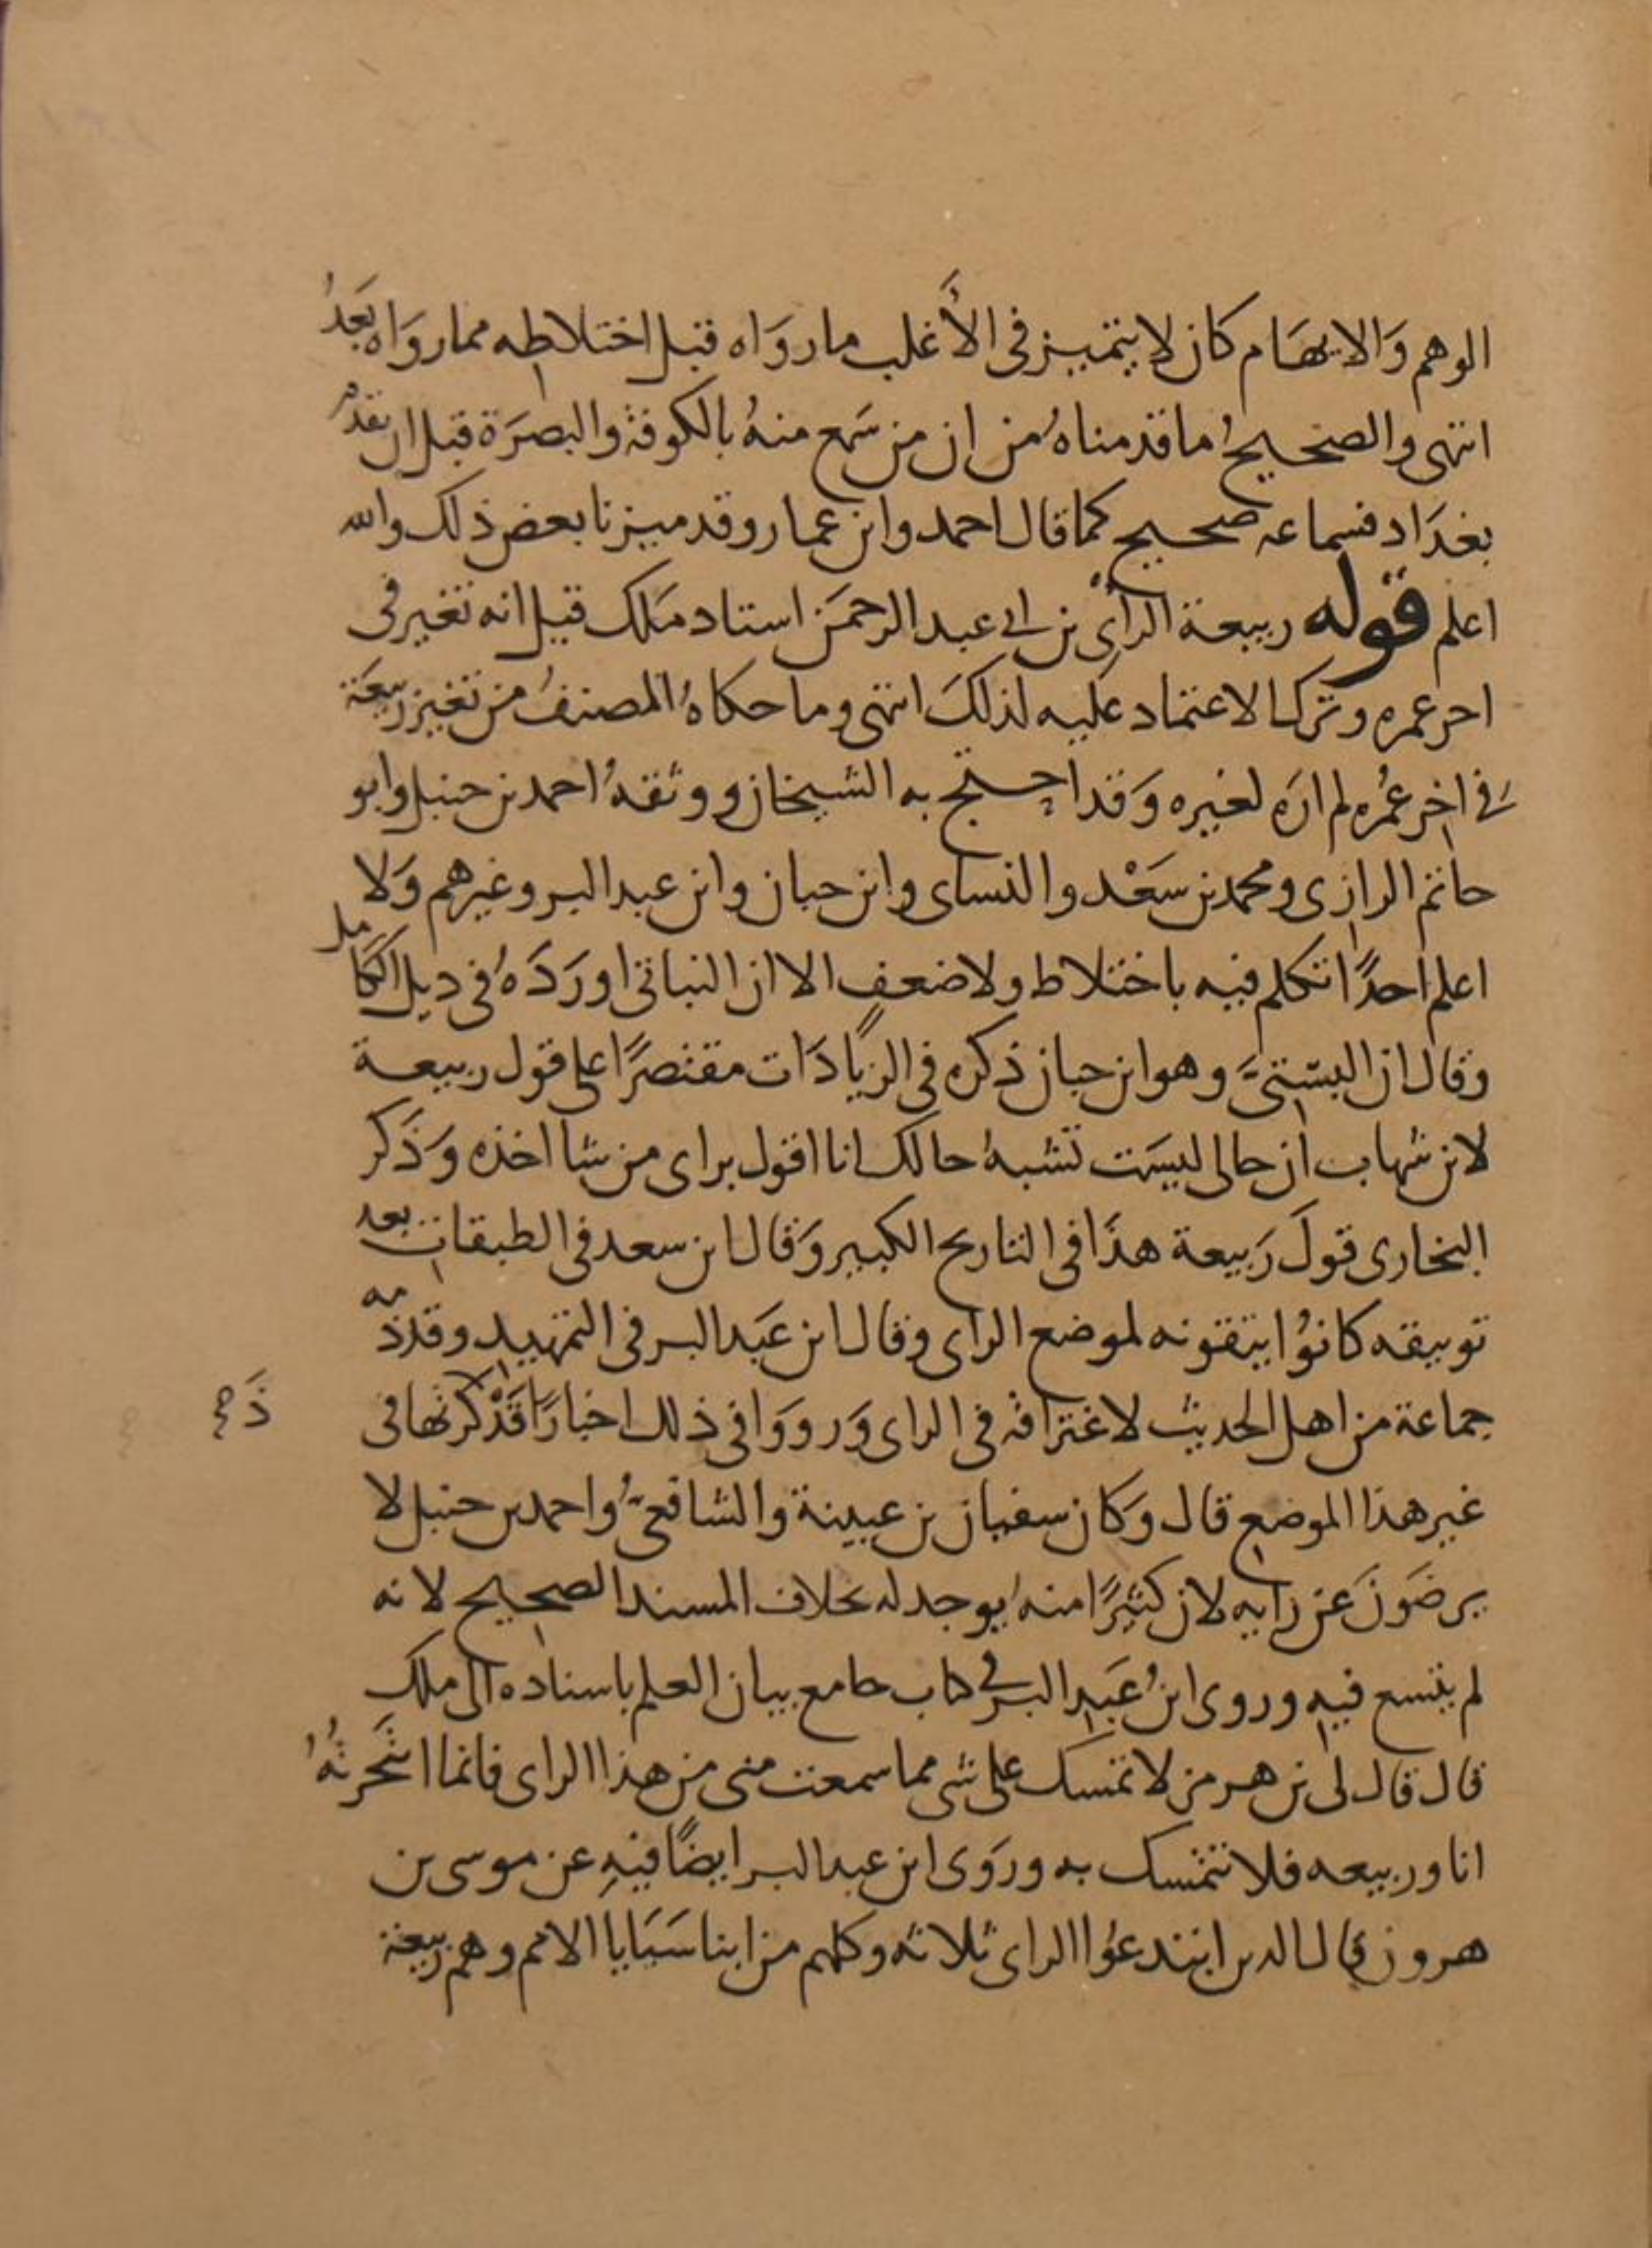 الوهم وَالايهَام كان لا يتميز فى الأغلب ما روَاه قبل اختلاطه مما روَاه بَعدُ
انتهى والصحيحُ ما قدمناهُ من ان من سَمع منهُ بالكوفة والبصرَة قبل ان يقدم
بغدَاد فسماعه صحيح كما قال احمد وابن عمار وقد ميزنا بعض ذلك والله
اعلم قوله ربيعة الرأى بن ابى عبد الرحمَن استاد مَلك قيل انه تغير فى
احر عمره وترك الاعتماد عَليه لذلكَ انتهى وما حكاهُ المصنفُ من تغير ربيعَة
فى اخر عُمُره لم ارَه لغيره وَقد احتج به الشيخان ووثقهُ احمد بن حنبل وابو
حاتم الرازى ومحمد بن سَعْد والنساى وابن حبان وابن عبد البر وغيرهم وَلا
اعلم احدًا تكلم فيه باختلاط ولا ضعف الا ان النباتى اورَدَهُ فى ديل الكامل
وقال ان البستىَّ وهو ابن حبان ذكره فى الزيَادَات مقتصرًا على قول ربيعة
لابن شهاب ان حالى ليسَت تشبهُ حالك انا اقول براى من شا اخذه وَذَكر
البخارى قولَ رَبيعة هذَا فى التاريح الكبير وَقال ابن سعد فى الطبقات بعد
توىيقه كانوُا يتقونه لموضع الراى وقال ابن عَبد البر فى التمهيد وقد ذمه
جماعة من اهل الحديث لاغتراقه فى الراى وَرووَا فى ذلك اخبارًا قَدْ ذكرتها فى
ذَمهُ
غير هذا الموضع قال وَكان سفيان بن عيينة والشافعىُّ واحمد بن حنبل لا
يرضَونَ عَن رايه لان كثيرًا منهُ يوجد له بخلاف المسند الصحيح لانه
لم يتسع فيه وروى ابنُ عَبد البر فى كتاب جامع بيان العلم باسناده الى ملك
قال قال لى بن هرمز لا تمسك على شى مما سمعت منى من هذا الراى فانما افتَجرتُهُ
انا وربيعه فلا تتمسك به وروَى ابن عبد البر ايضًا فيهِ عن موسى بن
هرون قال الدين ابتدعوُا الراى ثلاثه وكلهم من ابنا سَبَايا الامم وهم ربيعَة